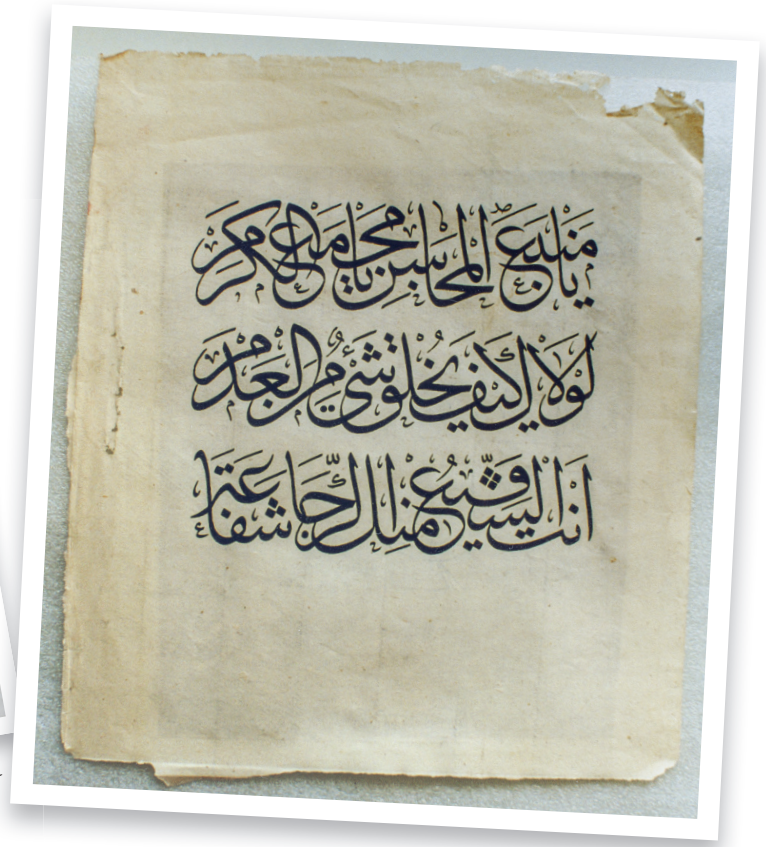 يا منبع المحاسن يا مجمع الكرم
لولاك كيف يخلق شئ من العدم
انت الشفيع منا الرجا شفاعة